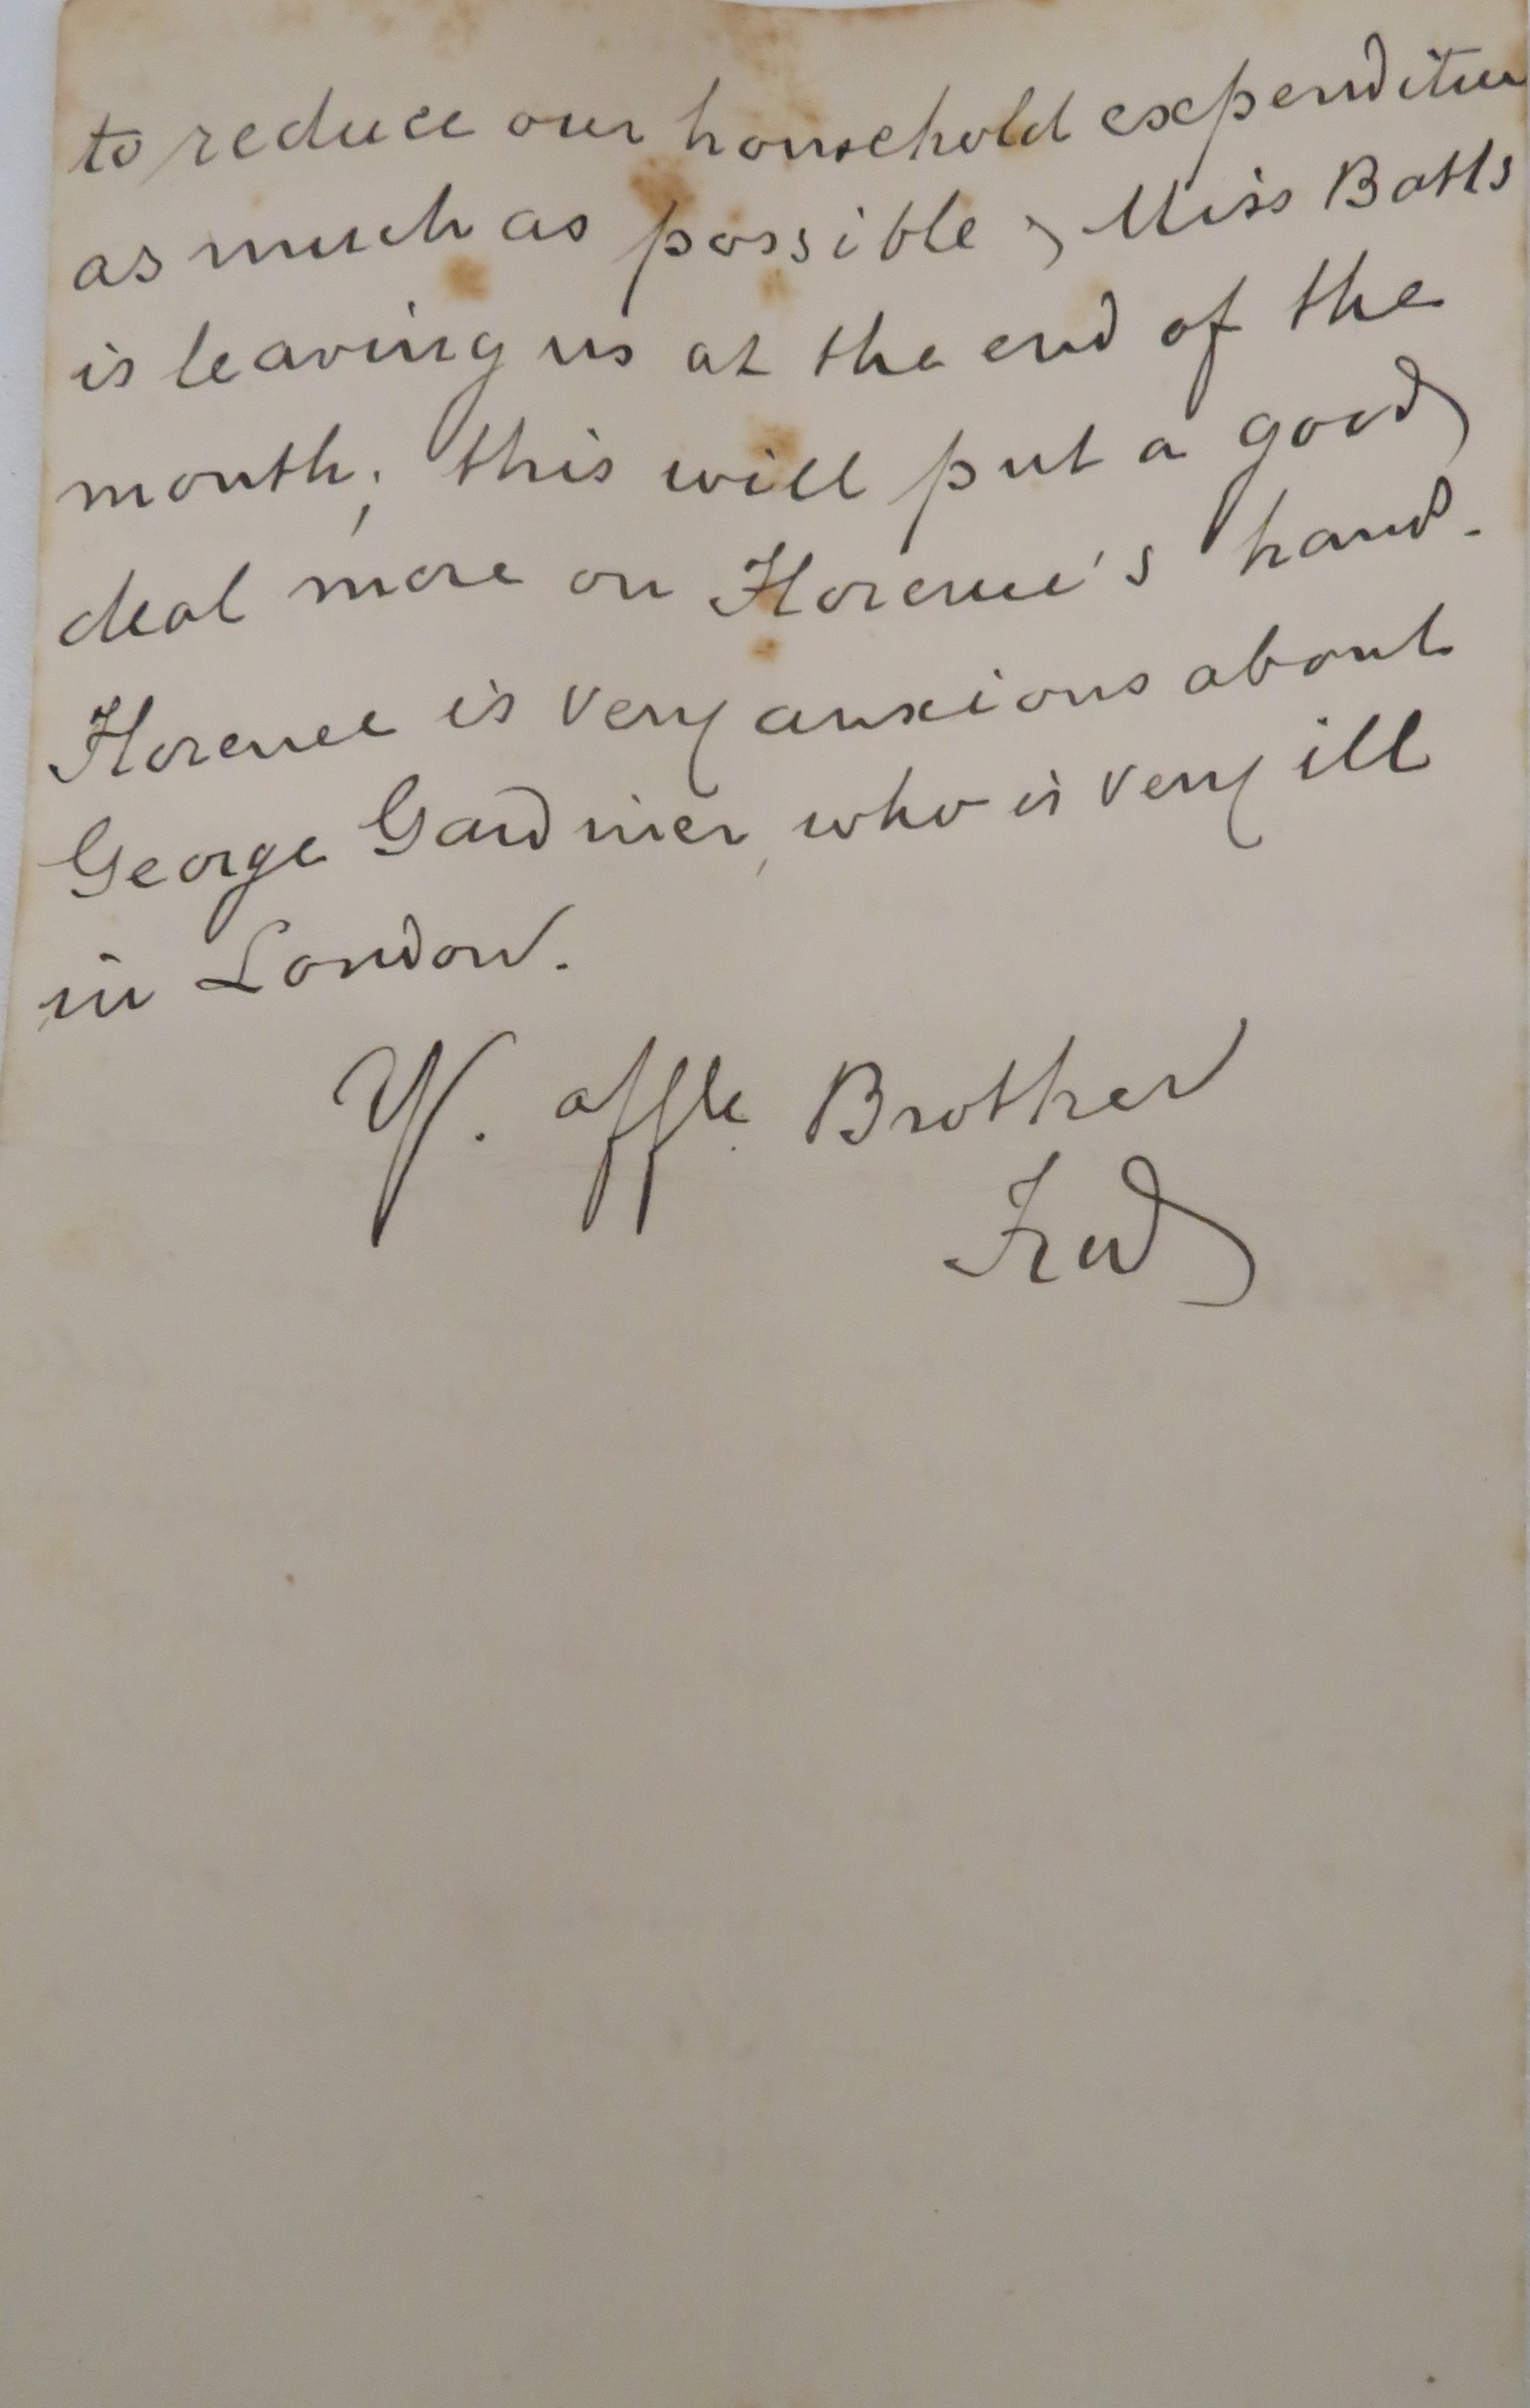 to reduce our household expenditure
as much as possible, Miss Batts
is leaving us at the end of the
month; this will put a good
deal more on Florence's hand.
Florence is very anxious about
George Gardiner, who is very ill
in London.
Yr. affte Brother
Fred